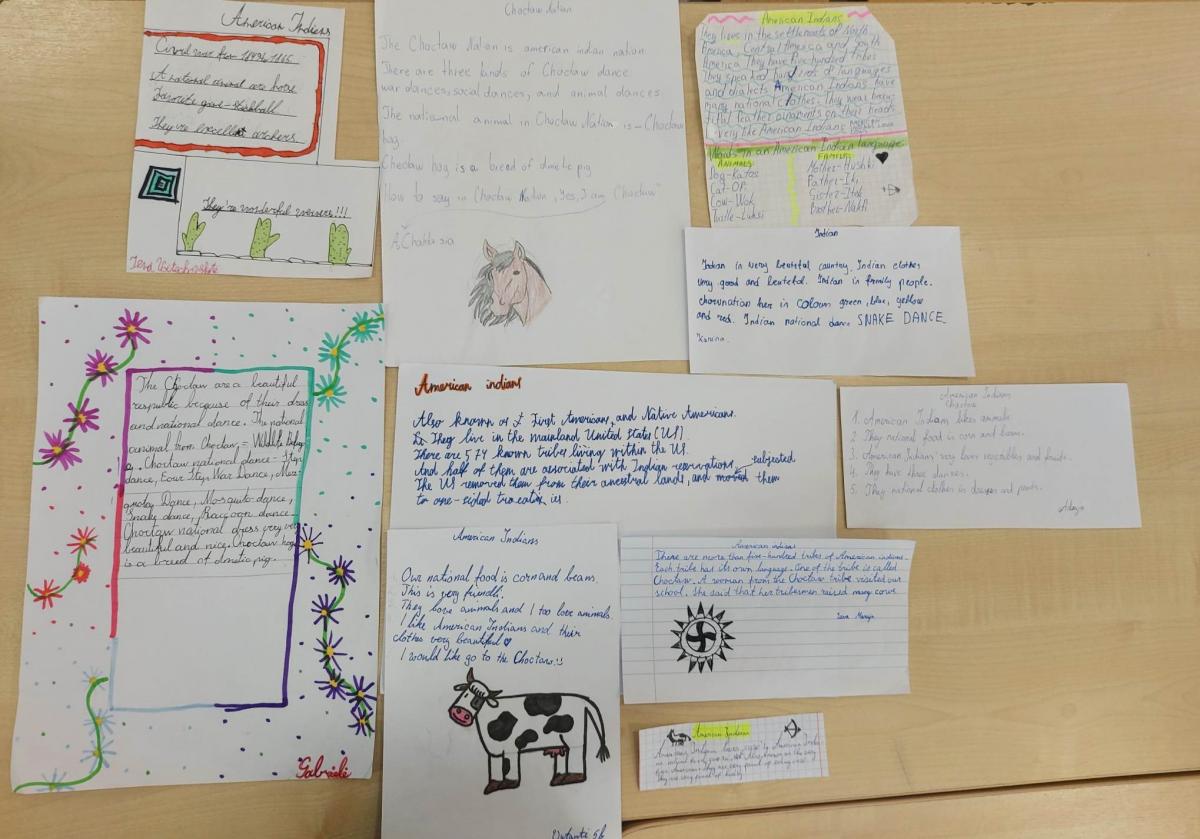 American Indians
Civil war for
A national animal are horse
Favorite game-
They're excellent archers.
They're wonderful weavers!!!
Choctaw Nation
The Choctaw Nation is american indian nation.
There are three kinds of Choctaw dance
war dances, social dances, and animal dances.
The national animal in Choctaw Nation is - Choctaw
hog
Choctaw hog is a breed of dmetic pig
How to say in Choctaw Nation "Yes, I am Choctaw"
A, Chahta sia
American Indians
They lives in the settlements of North
America, Central America and South
America. They have five hundred tribes
They speaked hundreds of languages
and dialects. American Indians have
many national clothes. They wear beau-
tiful feather ornaments on their heads
very like American Indians
Words in an American Indian language:
ANIMALS:
Dog-Katos
Cat-OPi
Cow-Wok
Turtle-Luksi
FAMILY:
Mother-Hushki
Father-Iki
Sister-Itek
Brother-Nakfi
Indian
Indian is very beuteful country. Indian clothes
very good and beuteful. Indian is frendly people.
her in colours green, blue, yellow
and red. Indian national dance SNAKE DANCE
Karina
The Choctaw are a beautiful
respublic because of their dress
and national dance. The national
animal from Choctaw =
Choctaw national dance - Step
dance, Four Step War Dance,
Dance, Mosquito dance,
Snake dance, Raccoon dance.
Choctaw national dress very very
beautiful and nice. Choctaw hog
is a breed of dmetic pig.
Gabrielė
American indians
Also known as First Americans, and Native Americans.
They live in the mainland United States (US)
There are 574 known tribes living within the US.
And half of them are associated with Indian reservations.
subjected
The US removed them from their ancestral lands, and moved them
to one-sided treaties.
American Indians
Choctaw
1. American Indians likes animals.
2. They national food is corn and beans.
3. American Indians very love vegetables and fruits.
4. They have three dances.
5. They national clothes is dresses and pants.
American Indians
Our national food is corn and beans.
This is very friendly.
They love animals and I too love animals.
I like American Indians and their
clothes very beautiful
I would like go to the Choctaw!!
5b
American indians
There are more than five-hundred tribes of American indians.
Each tribe has its own language. One of the tribe is called
Choctaw. A woman from the Choctaw tribe visited our
school. She said that her tribesmen raised many cows.
American Indians